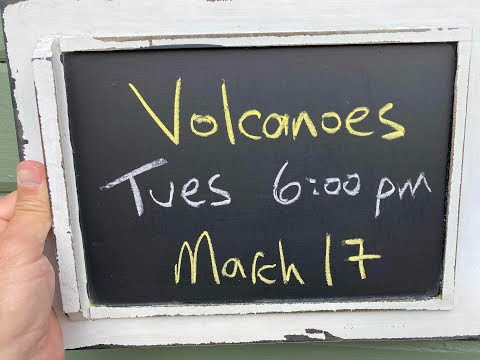 Volcanoes
Tues 6:00 pm
March 17